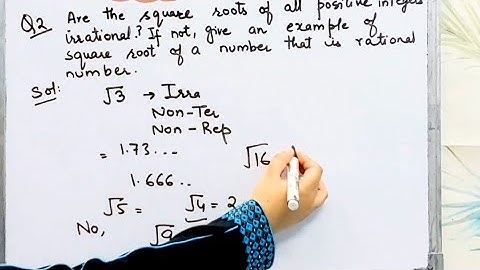 Q2 Are the square roots of all positive integers
irrational? If not, give an example of
square root of a number that is rational
number.
Sol: √3 → Irra
Non-Ter
Non-Rep
= 1.73...
√16
1.666..
√5 = √4 = 2
No, √9